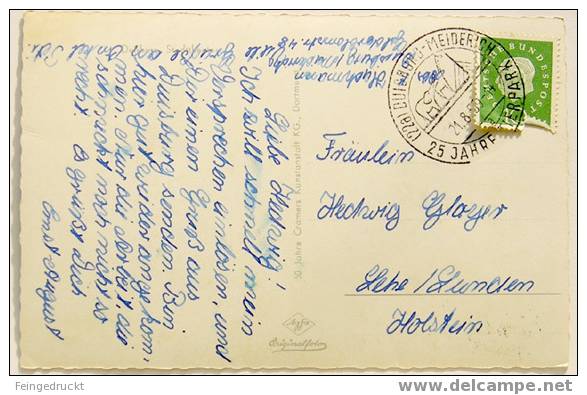 Liebe Hedwig!
Ich will schnell mein
Versprechen einlösen, und
Dir einen Gruß aus
Duisburg senden. Bin
hier gut wieder angekom-
men. Nur die Arbeit die
schmeckt noch nicht so
recht. Es grüßt Dich
Ernst August
Grüße an
Onkel
50 Jahre Cramers Kunstanstalt KG., Dortmund
Agfa
Originalfoto
(22a) DUISBURG-MEIDERICH
21.8.
25 JAHRE TIERPARK
DEUTSCHE BUNDESPOST
Fräulein
Hedwig Glazer
Hehe/Lunden
Holstein
Feingedruckt
www.delcampe.net